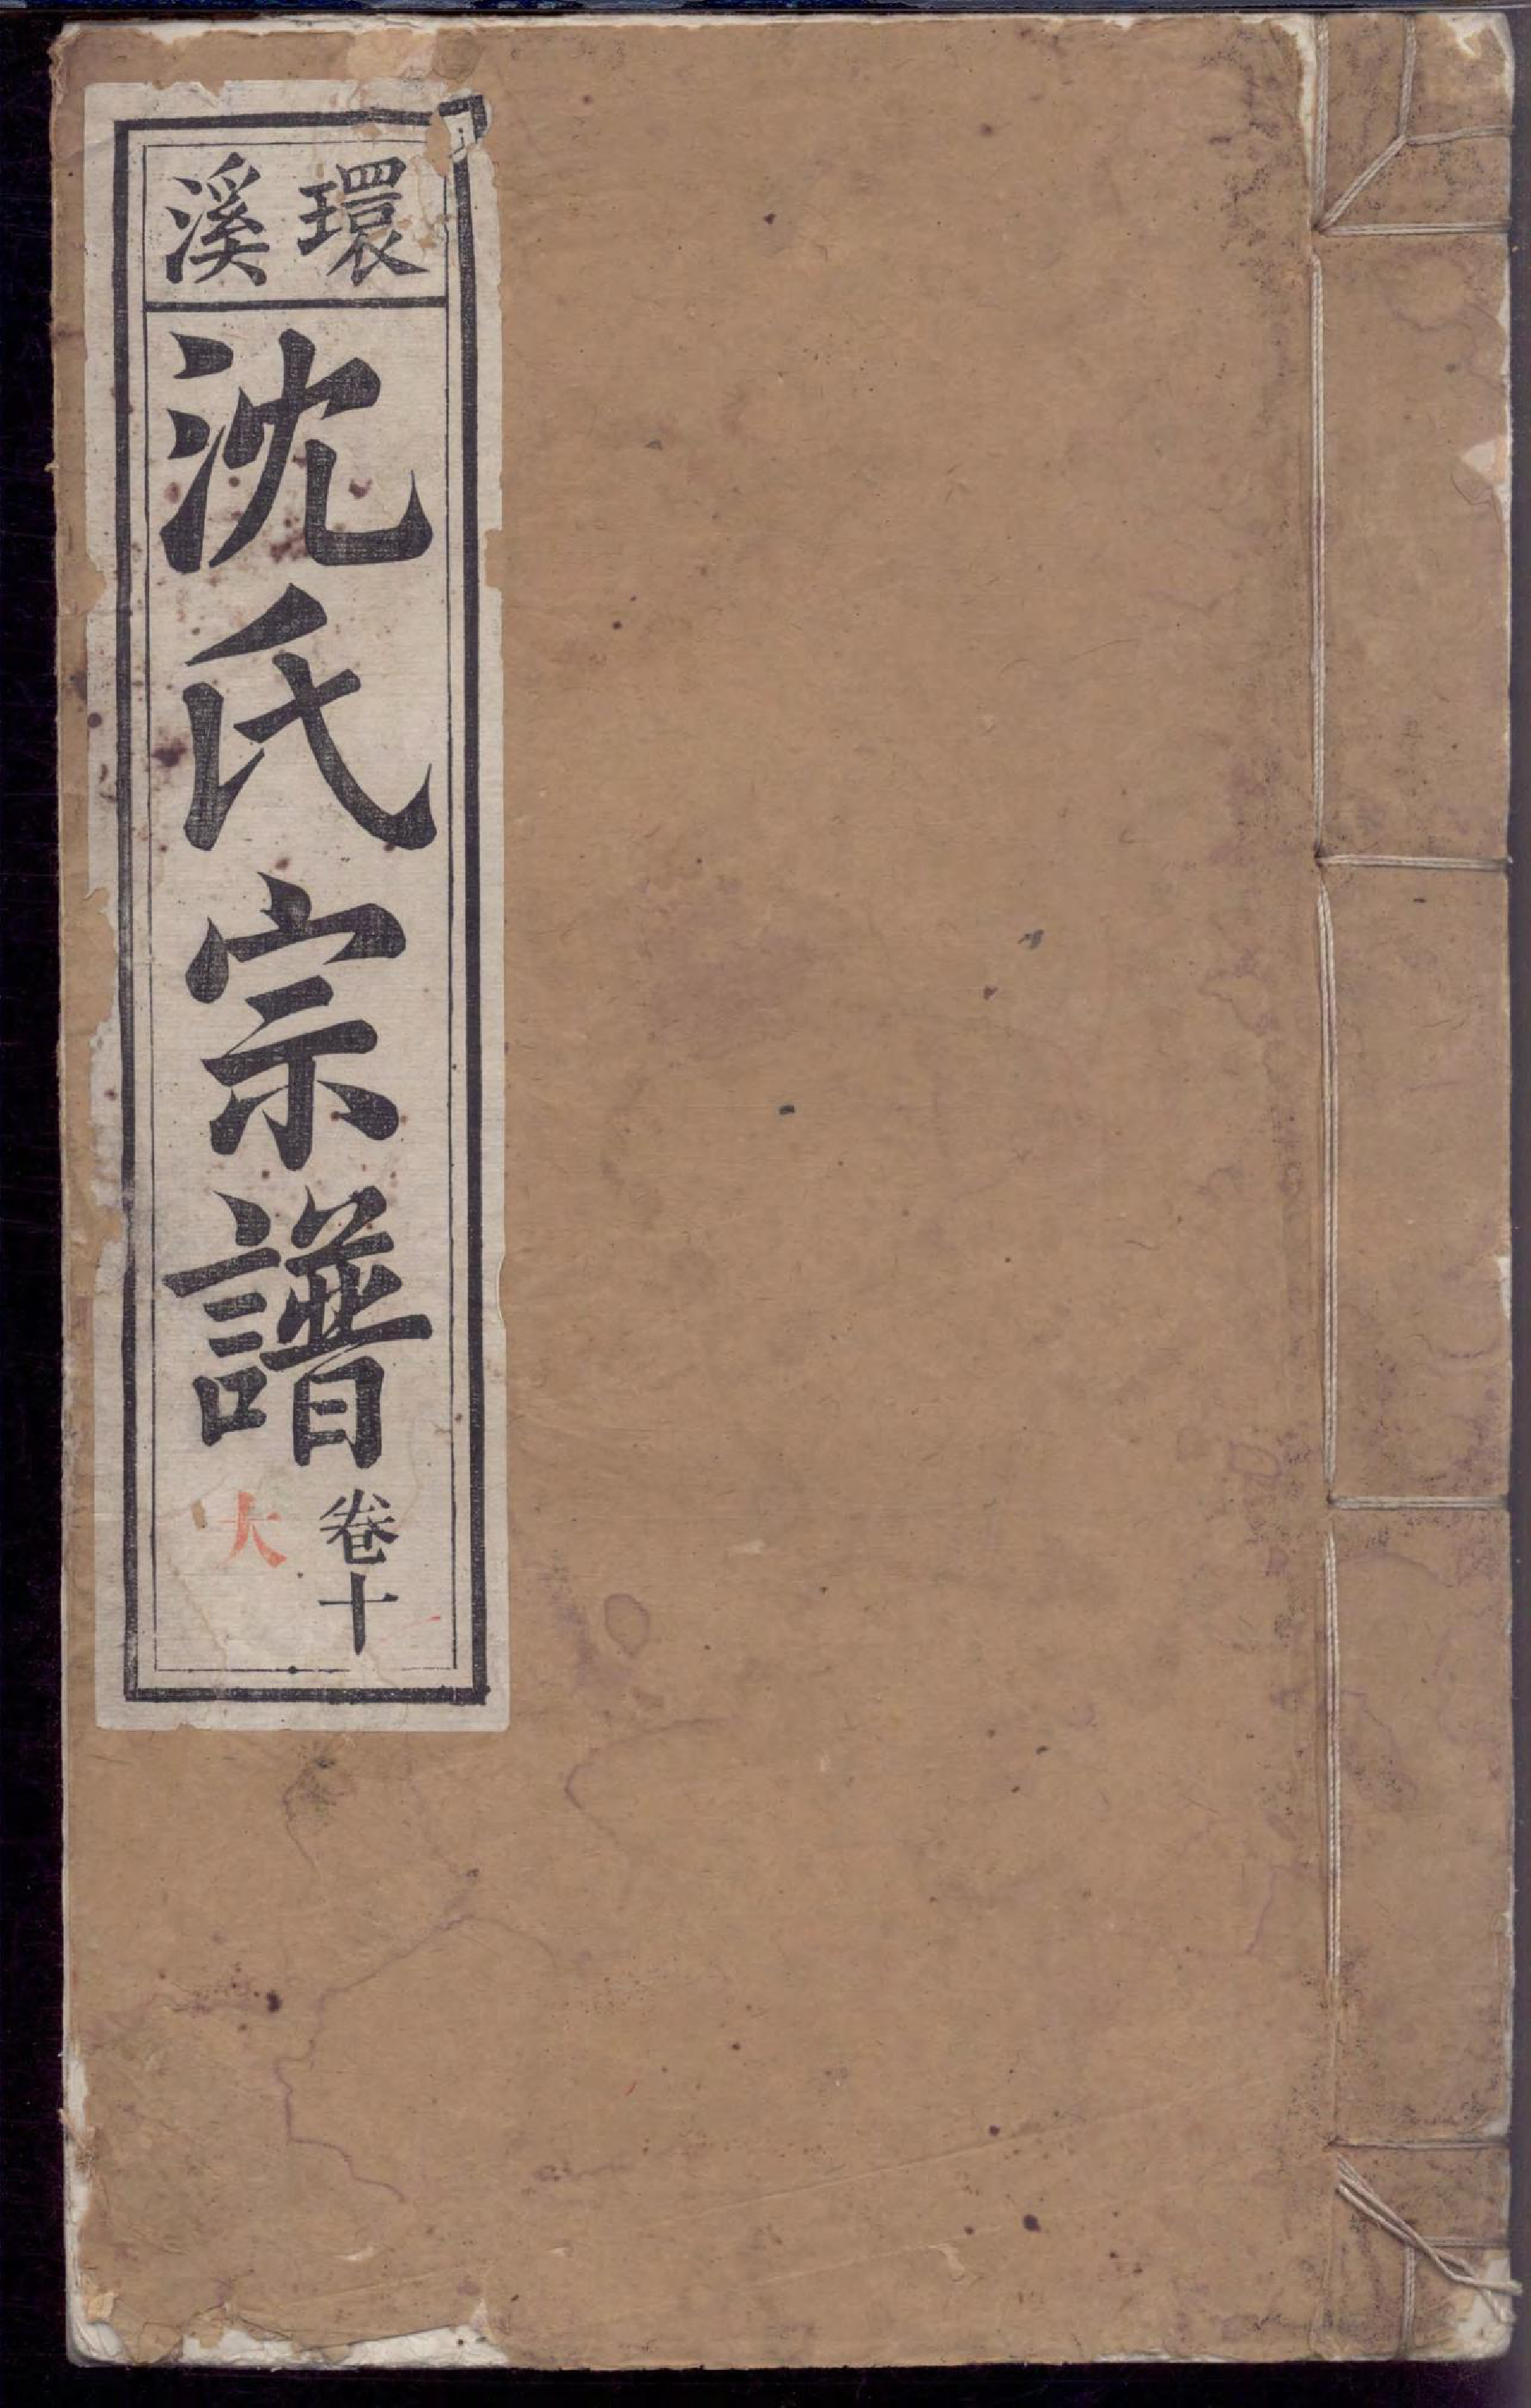 環溪
沈氏宗譜
卷十
大